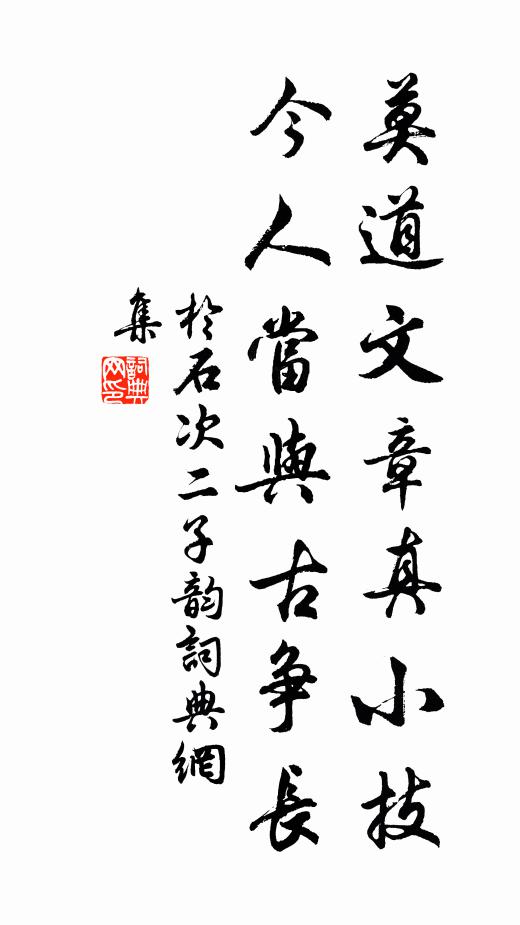 莫道文章真小技
今人當與古爭長
於石次二子韵詞典網
集
詞典网印